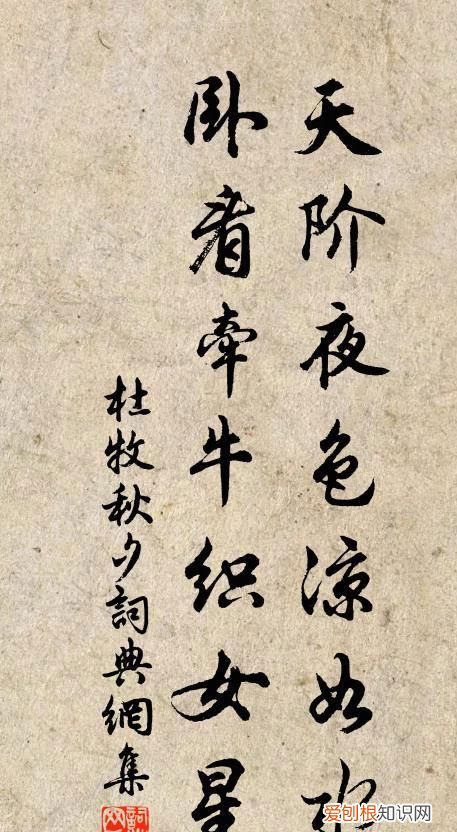 天阶夜色涼如水
卧看牵牛织女星
杜牧秋夕詞典網集
爱刨根知识网